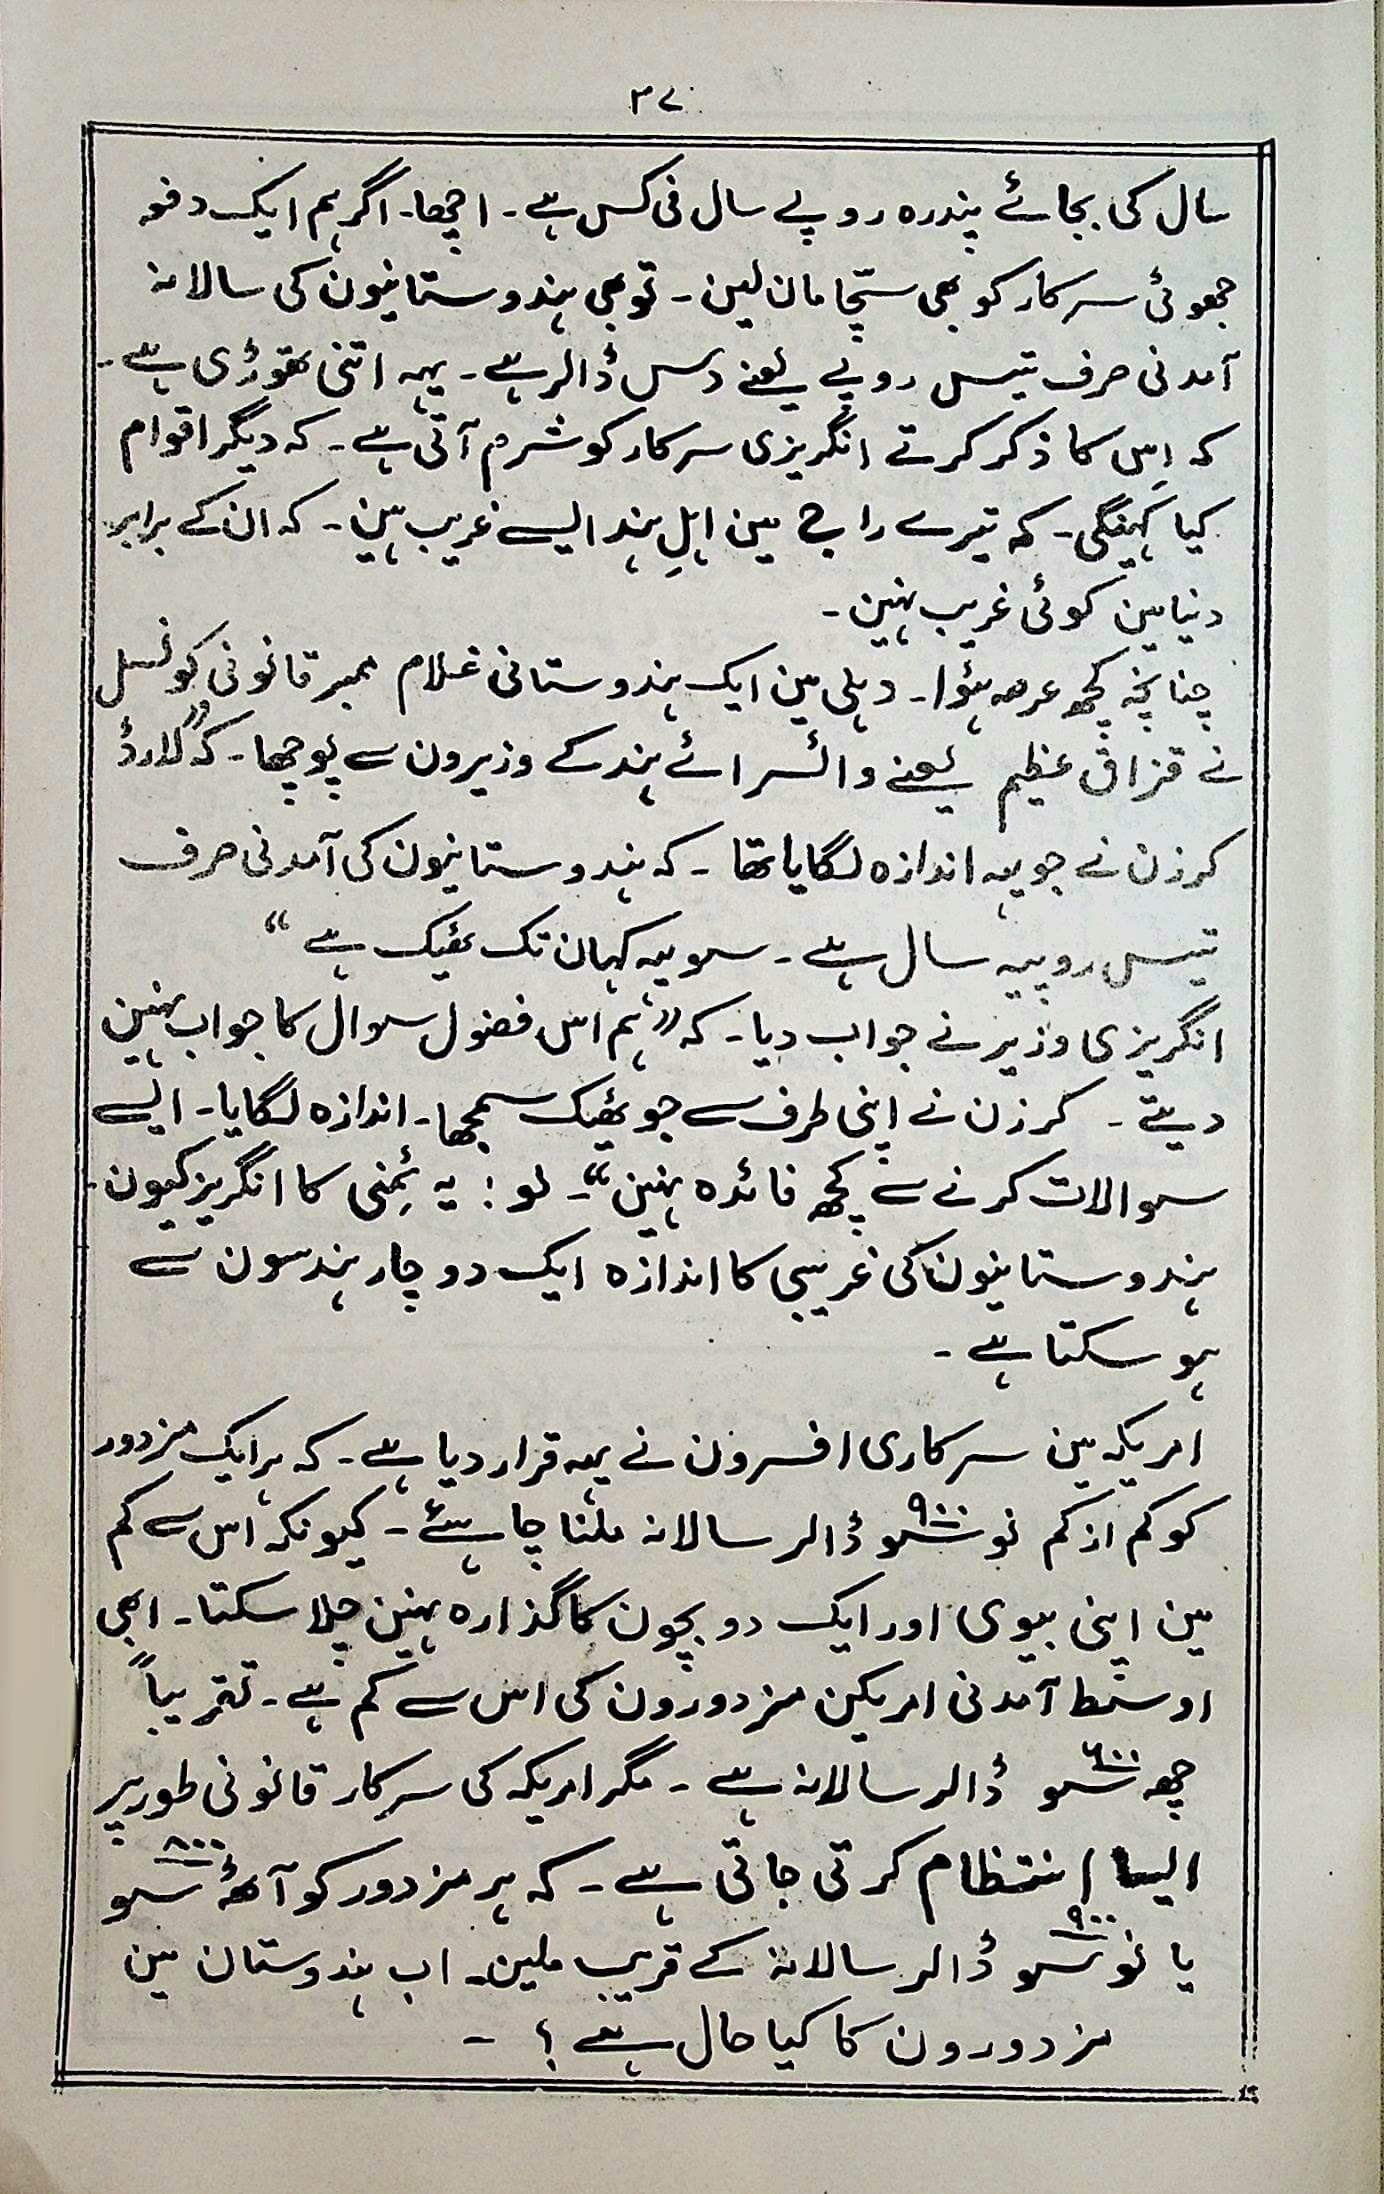 ۳۷
سال کی بجائے پندرہ روپے سال فی کس ہے۔ اچھا۔ اگر ہم ایک دفعہ
جھوٹی سرکار کو بھی سچّا مان لین۔ تو بھی ہندوستانیون کی سالانہ
آمدنی صرف تیس روپے یعنے دس ڈالر ہے۔ یہہ اتنی تھوڑی ہے۔
کہ اِس کا ذکر کرتے انگریزی سرکار کو شرم آتی ہے۔ کہ دیگر اقوام
کیا کہینگی۔ کہ تیرے راج مین اہلِ ہند ایسے غریب ہین۔ کہ ان کے برابر
دنیا مین کوئی غریب نہین۔
چنانچہ کچھ عرصہ ہئوا۔ دہلی مین ایک ہندوستانی غلام ممبر قانونی کونسل
نے قزاق عظیم یعنے وائسرائے ہند کے وزیرون سے پوچھا۔ کہ ”لارڈ
کرزن نے جو یہہ اندازہ لگایا تھا۔ کہ ہندوستانیون کی آمدنی صرف
تیس روپیہ سال ہے۔ سو یہہ کہان تک ٹھیک ہے“
انگریزی وزیر نے جواب دیا۔ کہ ”ہم اس فضول سوال کا جواب نہین
دیتے۔ کرزن نے اپنی طرف سے جو ٹھیک سمجھا۔ اندازہ لگایا۔ ایسے
سوالات کرنے سے کچھ فائدہ نہین“۔ لو! یہ ئِمنی کا انگریز کیون۔
ہندوستانیون کی غریبی کا اندازہ ایک دو چار ہندسون سے
ہو سکتا ہے۔
امریکہ مین سرکاری افسرون نے یہہ قرار دیا ہے۔ کہ ہر ایک مزدور
کو کم از کم نو سو ۹۰۰ ڈالر سالانہ ملنا چاہئے۔ کیونکہ اس سے کم
مین اپنی بیوی اور ایک دو بچون کا گذارہ نہین چلا سکتا۔ ابھی
اوسط آمدنی امریکن مزدورون کی اس سے کم ہے۔ تقریباً
چھ سو ۶۰۰ ڈالر سالانہ ہے۔ مگر امریکہ کی سرکار قانونی طور پر
ایسا انتظام کرتی جاتی ہے۔ کہ ہر مزدور کو آٹھ سو ۸۰۰
یا نو سو ۹۰۰ ڈالر سالانہ کے قریب ملین۔ اب ہندوستان مین
مزدورون کا کیا حال ہے؟ ۔